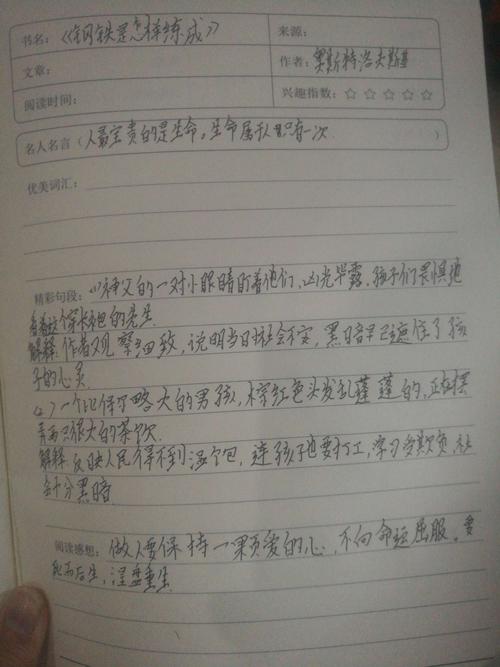 书名：《钢铁是怎样练成》
来源：
文章：
作者：奥斯特洛夫斯基
阅读时间：
兴趣指数：☆ ☆ ☆ ☆ ☆
名人名言（人最宝贵的是生命。生命属于人只有一次）
优美词汇：
精彩句段：(1)神父的一对小眼睛盯着他们，凶光毕露，孩子们畏惧地
看着这个穿长袍的先生
解释：作者观察细致，说明当日社会不安，黑暗早已遮住了孩
子的心灵
(2)一个比保尔略大的男孩，棕红色头发乱蓬蓬的，正在摆
弄两只很大的茶饮
解释：反映人民得不到温饱，连孩子也要打工，学习多欺负 社
会十分黑暗
阅读感想：做人要保持一颗爱的心，不向命运屈服。要
死而后生，涅盘重生